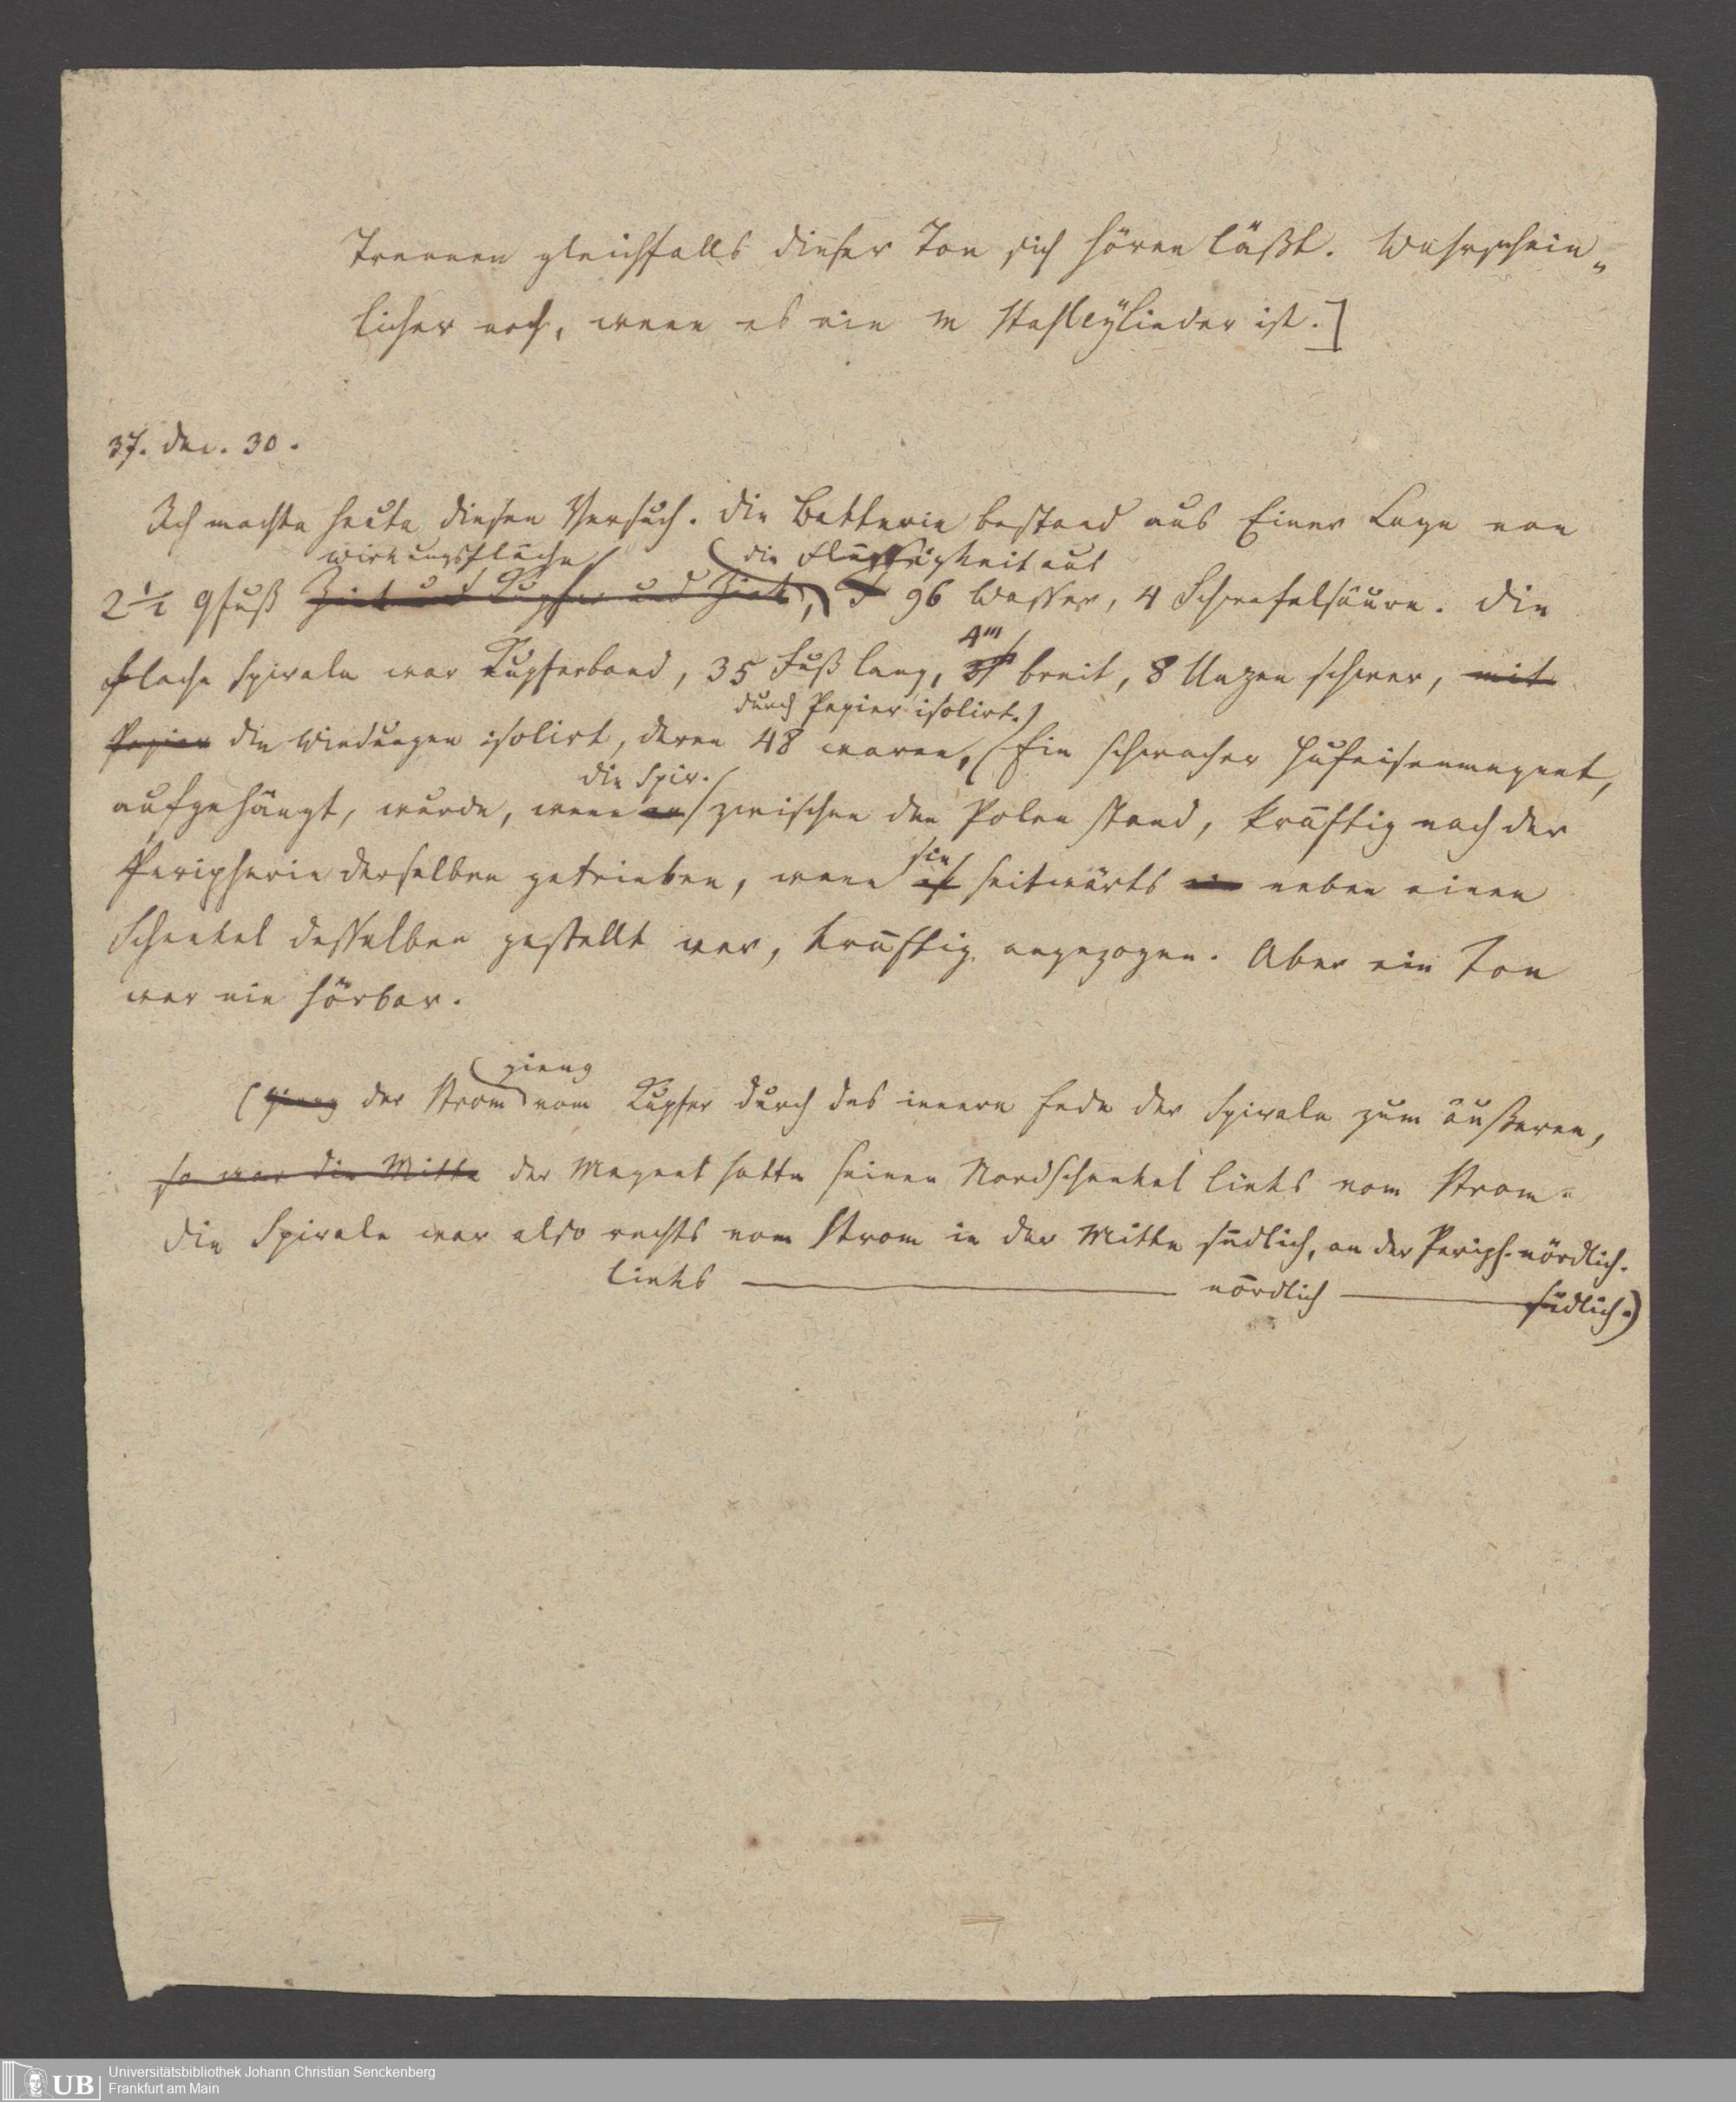 Trennen gleichfalls dieser Ton sich hören läßt. Wahrschein„
licher noch, wenn es ein m Stahlcylinder ist.]
37. Dec. 30.
Ich machte heute diesen Versuch. Die Batterie bestand aus Einer Lage von
Wirkungsfläche die Flüssigkeit aus
2 1/2 qfuß Zink und Kupfer und Zink, 96 Wasser, 4 Schwefelsäure. Die
4'''
flache Spirale war Kupferband, 35 Fuß lang, breit, 8 Unzen schwer, mit
durch Papier isolirt.
Papier die Windungen isolirt, deren 48 waren, Ein schwacher Hufeisenmagnet,
die Spir.
aufgehängt, wurde, wenn er zwischen den Polen stand, kräftig nach der
sie
Peripherie derselben getrieben, wenn seitwärts neben einen
Schenkel desselben gestellt war, kräftig angezogen. Aber ein Ton
war nie hörbar.
gieng
(Gieng der Strom vom Kupfer durch das innere Ende der Spirale zum äußeren,
so war die Mitte der Magnet hatte seinen Nordschenkel links vom Strom.
Die Spirale war also rechts vom Strom in der Mitte südlich, an der Periph. nördlich.
links ——— nördlich ——— südlich.)
Universitätsbibliothek Johann Christian Senckenberg
UB Frankfurt am Main